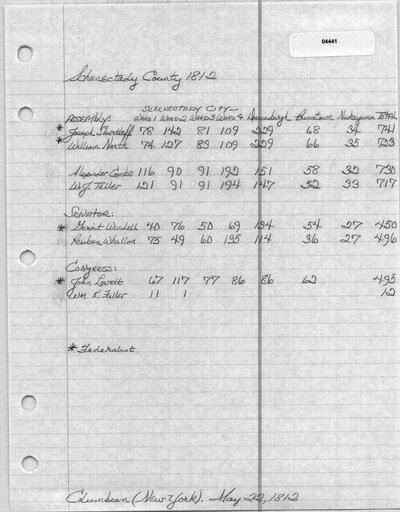 04441
Schenectady County 1812
SCHENECTADY CITY—
ASSEMBLY: WARD 1 WARD 2 WARD 3 WARD 4 Duanesburgh Princetown Niskayuna TOTAL
* Joseph Shurtleff 78 142 81 109 229 68 34 741
* William North 74 127 83 109 229 66 35 723
Alexander Combs 116 90 91 192 151 58 32 730
Wm J. Teller 121 91 91 194 147 52 33 717
SENATOR:
* Gerrit Wendell 40 76 50 69 134 54 27 450
Reuben Whallon 75 49 60 135 114 36 27 496
CONGRESS:
* John Lovett 67 117 77 86 86 62 495
Wm. K. Fuller 11 1 12
* Federalist
Columbian (New York). May 22, 1812